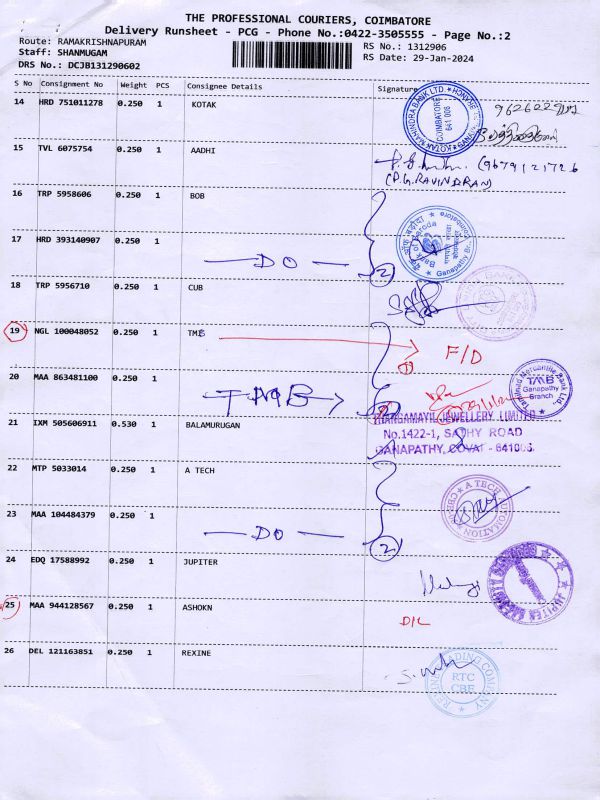 THE PROFESSIONAL COURIERS, COIMBATORE
Delivery Runsheet - PCG - Phone No.:0422-3505555 - Page No.:2
Route: RAMAKRISHNAPURAM
RS No.: 1312906
Staff: SHANMUGAM
RS Date: 29-Jan-2024
DRS No.: DCJB131290602
S No Consignment No Weight PCS Consignee Details Signature
14 HRD 751011278 0.250 1 KOTAK
KOTAK MAHINDRA BANK LTD.
COIMBATORE
641 006
15 TVL 6075754 0.250 1 AADHI
(P.G.RAVINDRAN)
16 TRP 5958606 0.250 1 BOB
Bank of Baroda
Ganapathy Br.
17 HRD 393140907 0.250 1
DO
2
18 TRP 5956710 0.250 1 CUB
19 NGL 100048052 0.250 1 TMB
1 F/D
20 MAA 863481100 0.250 1
TMB
Tamilnad Mercantile Bank Ltd.
TMB
Ganapathy
Branch
21 IXM 505606911 0.530 1 BALAMURUGAN
THANGAMAYIL JEWELLERY LIMITED
No.1422-1, SATHY ROAD
GANAPATHY, COVAI - 641006
22 MTP 5033014 0.250 1 A TECH
A TECH AUTOMATION
CBE
23 MAA 104484379 0.250 1
DO
2
24 EDQ 17588992 0.250 1 JUPITER
JUPITER
25 MAA 944128567 0.250 1 ASHOKN
D/L
26 DEL 121163851 0.250 1 REXINE
REXINE TRADING COMPANY
RTC
CBE